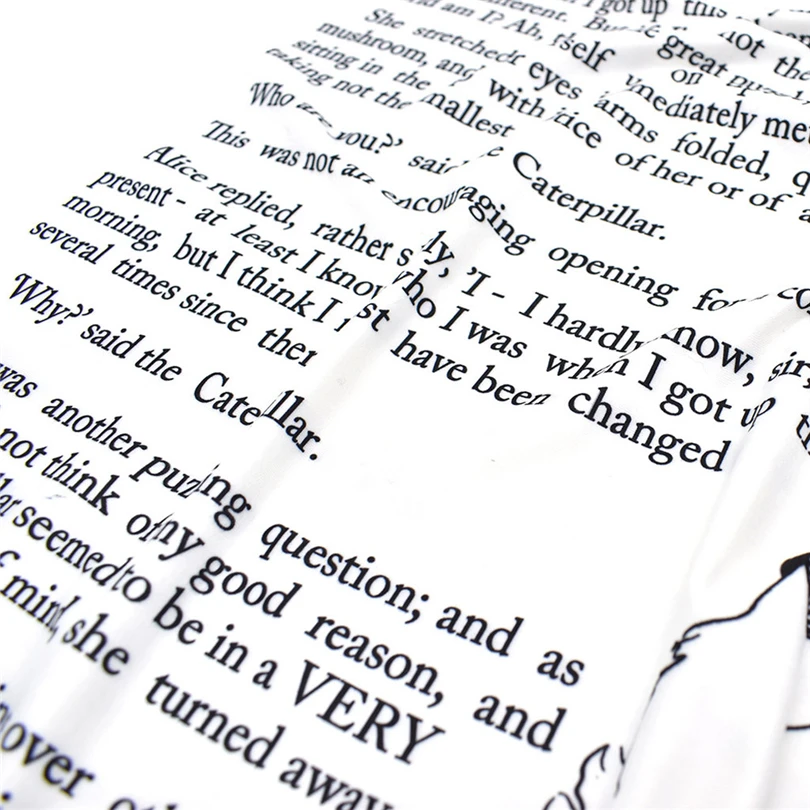 got up this
different. But
and am I? Ah, self great not the
She stretched eyes on
mushroom, and immediately met
sitting in the with arms folded, q
taking not the smallest of her or of a
Who are you?' said Caterpillar.
This was not an encouraging opening for
Alice replied, rather ly, 'I - I hardly now, sir,
present - at least I know who I was when I got up
morning, but I think I st have been changed
several times since then
'Why?' said the Cate llar.
was another puz ing question; and as
not think of my good reason, and
lar seemed to be in a VERY
mind, she turned away
over